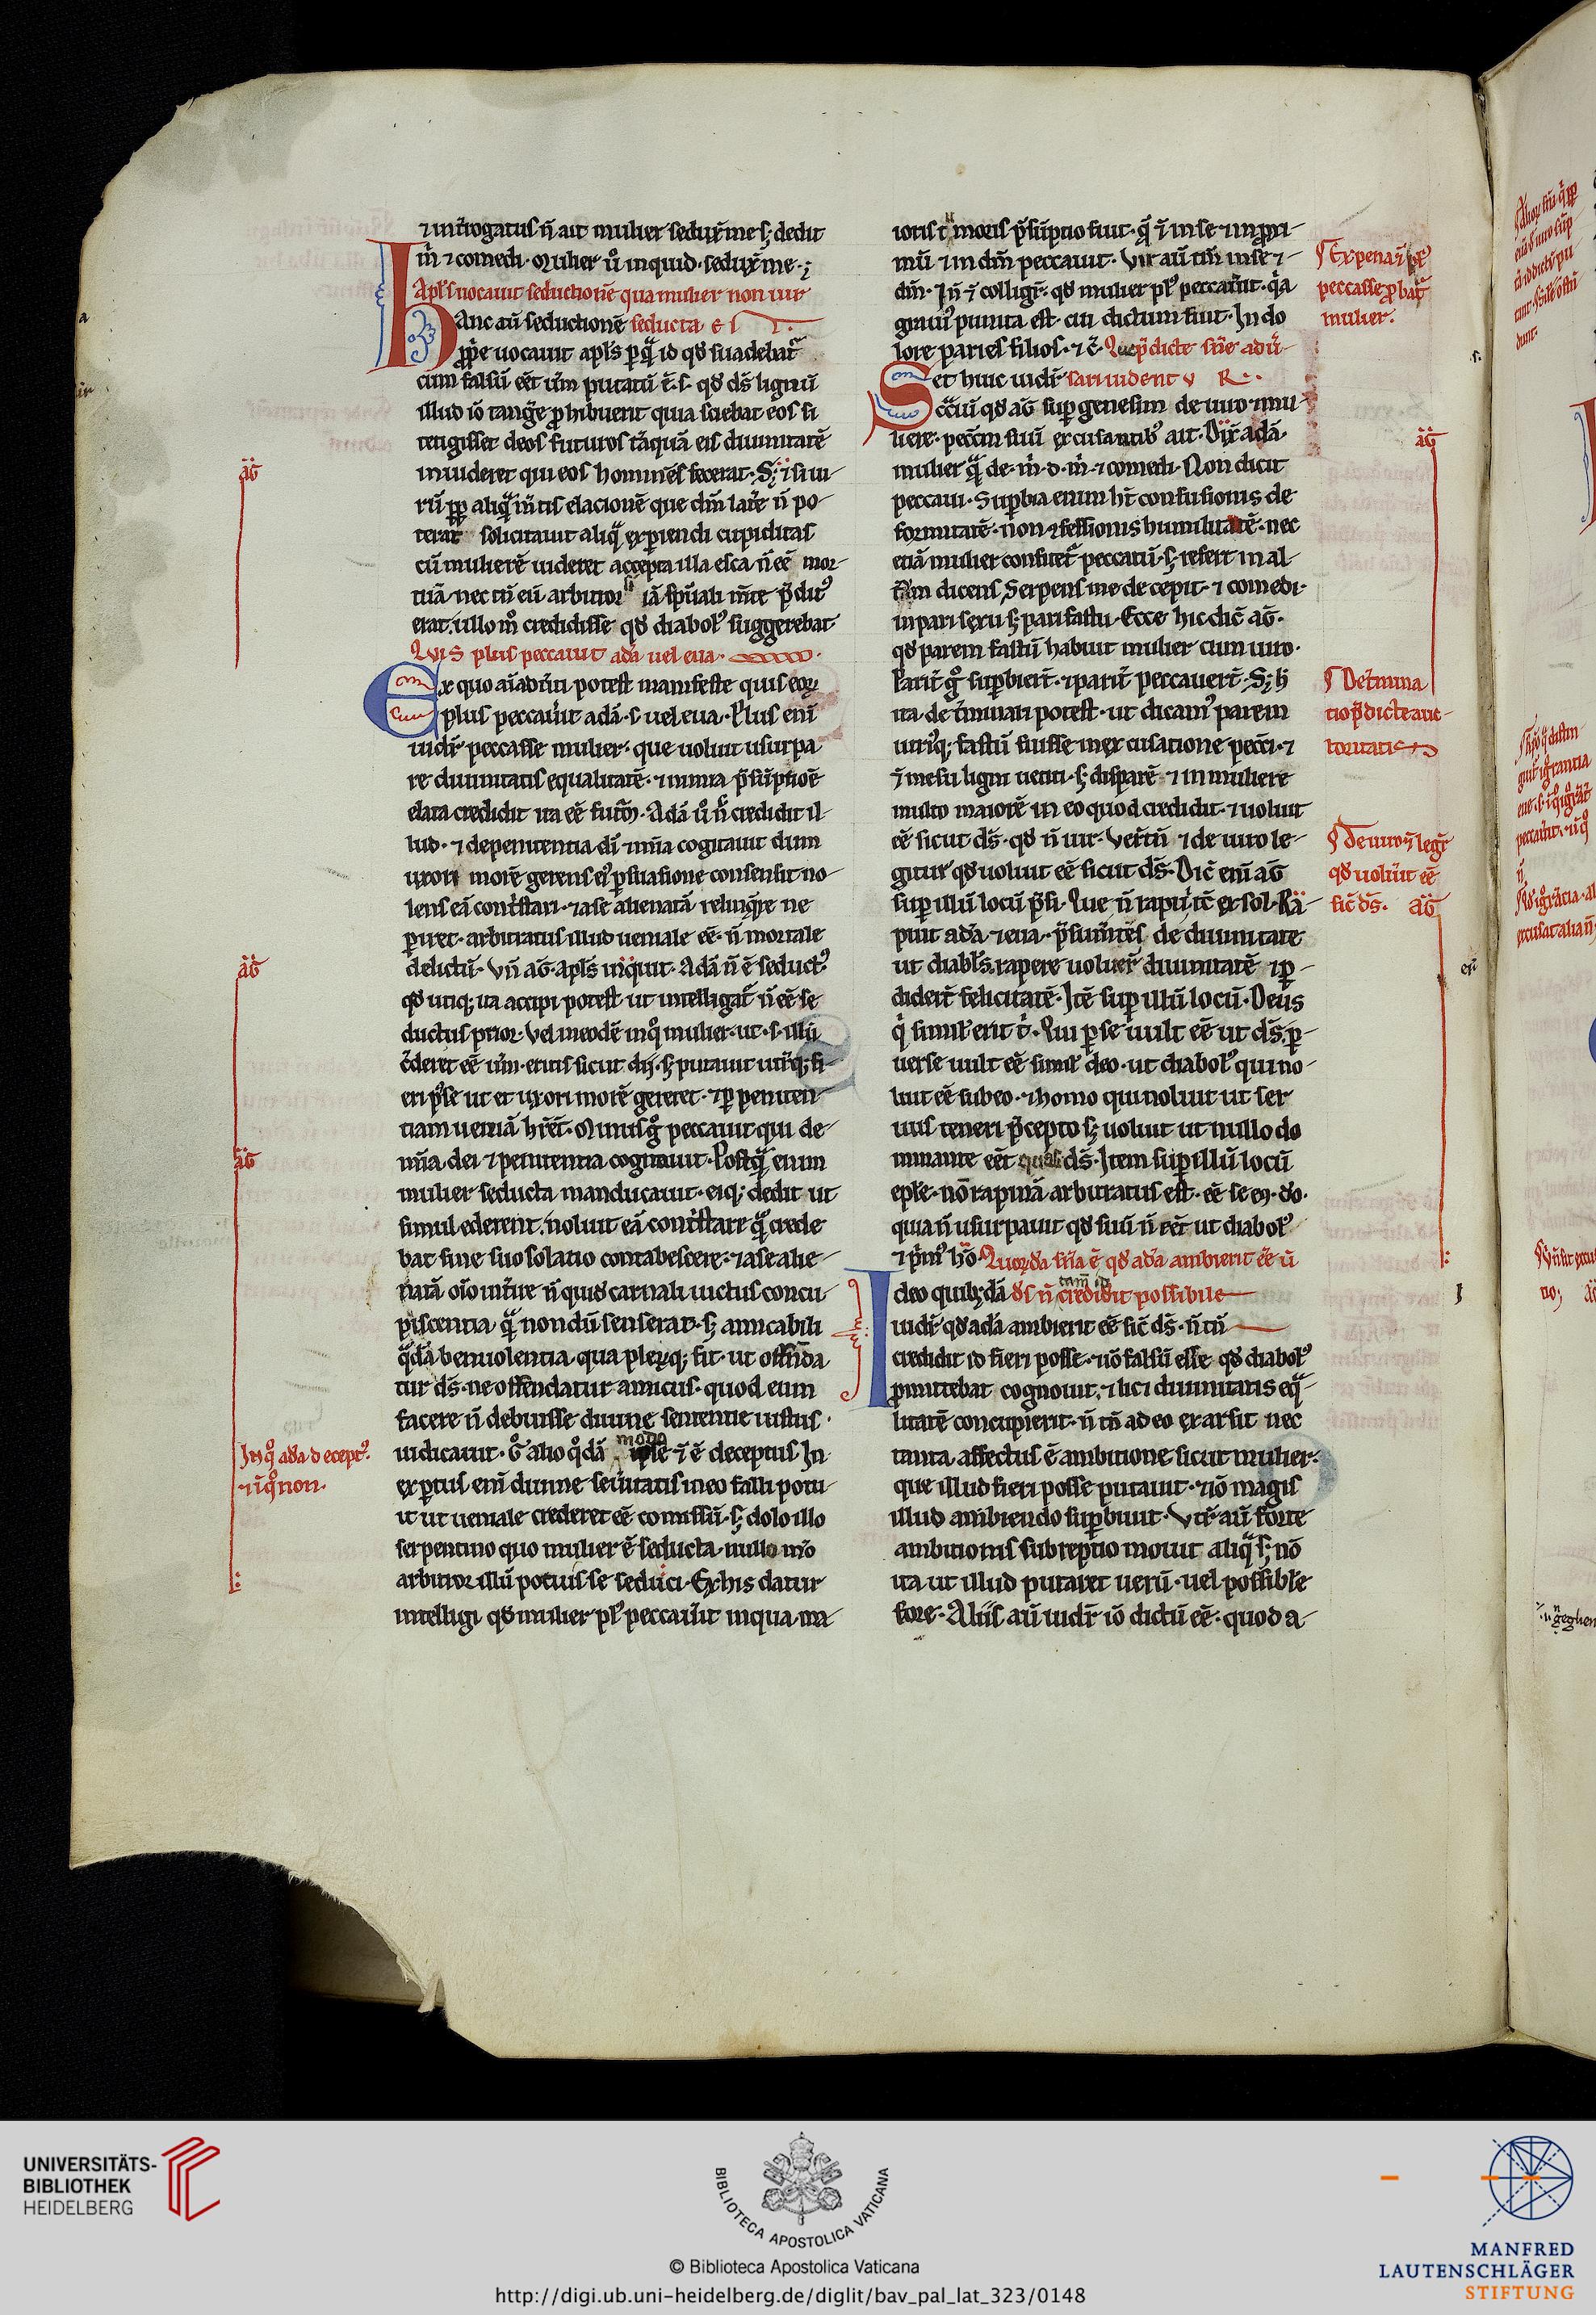 ⁊ int̾rogatus n̄ ait mulier sedux̄ me sꝫ dedit
m̄ ⁊ comedi. Mulier ů inquid. sedux̄ me.
Apl̄s uocauit seductionē qua mulier non uir
Hanc aū seductionē seducta e
p̲p̲e uocauit apl̄s
cum falsū eēt uᷓm putatū ē. s. qd̓ ds̄ lignū
illud iō tangᷓe ꝓhibuerit quia sciebat eos si
tetigisset deos futuros tāquā eis diuinitatē
inuideret qui eos homines fecerat.
rū ꝓp̲ aliquā m̄tis elationē que dm̄ latē n̄ po-
terat solicitauit aliqᷓ exp̲iendi cupiditas
cū mulierē uideret accepta illa esca n̄ eē mor-
tuā nec tn̄ eū arbitror iā sp̄uali m̄te p̄ditꝰ
erat. ullo m̊ credidisse qd̓ diabolꝰ suggerebat
Quis plus peccauit adā uel eua.
Ex quo aīaduti potest manifeste quis eoꝝ
plus peccau̾it adā. s. uel eua. Plus enī
uidr̄ peccasse mulier. que uoluit usurpa
re diuinitatis equalitatē. ⁊ nimia p̄sūptioē
elata credidit ita eē futuꝝ. Adā ů n̄ credidit il-
lud. ⁊ de penitentia di ⁊ mīa cogitauit dum
uxori morē gerens eiꝰ p̲suasione consensit no-
lens eā cont̾stari. ⁊ a se alienatā relinqᷓre ne
p̲iret. arbitratus illud ueniale eē. n̄ mortale
delictū. Vn̄ aḡ. apl̄s inquit. Adā n̄ ē seductꝰ
qd̓ utiqꝫ ita accipi potest ut intelligat̾ n̄ eē se
ductus prior. Vel in eo dē in qͦ mulier. ut. s. illū
c̄deret eē uᷓm. eritis sicut dij. sꝫ putauit ut̾qꝫ fi-
eri p̲se ut et uxori morē gereret. ⁊ p̲ peniten
tiam ueniā hr̄et. Minus gͦ peccauit qui de
mīa dei ⁊ penitentia cogitauit. Postqᷓ enim
mulier seducta manducauit. eiqꝫ dedit ut
simul ederent. noluit eā cont̾stare qᷓ crede
bat sine suo solatio contabescere. ⁊ a se alie-
natā oīo int̾ire n̄ quid̓ carnali uictus concu
piscentia qᷓ nondū senserat. sꝫ amicabili
qᷓdā beniuolentia qua pleꝝqꝫ fit. ut offēda
tur ds̄. ne offendatur amicus. quod eum
facere n̄ debuisse diuine sententie iustus.
iudicauit. Gͦ alio qͦdā modo ipse ⁊ ē deceptus In
exp̲tus enī diuine seu̾itatis in eo falli potu
it ut ueniale crederet eē comissū. sꝫ dolo illo
serpentino quo mulier ē seducta nullo mō
arbitror illū potuisse seduci. Ex his datur
intelligi qd̓ mulier plꝰ peccau̾it in qua ma
ioris tumoris p̄sūptio fuit. qᷓ ⁊ in se ⁊ in ꝓxi-
mū ⁊ in dm̄ peccauit. Vir aū tm̄ in se ⁊
dm̄. In̄ ⁊ colligr̄. qd̓ mulier plꝰ peccau̾it. qᷓa
grauiꝰ punita est. cui dictum fuit. In do
lore paries filios. ⁊ c̄. Que p̄dicte sn̄ie adū
Set huic uidr̄ sari uident̾
Scᷓiū qd̓ aḡ sup̲ genesim de uiro ⁊ mu
liere. peccm̄ suū excusantibꝰ ait. Dix̄ adā.
mulier qᷓ de. m̄. d. m̄. ⁊ comedi. Non dicit
peccaui. Sup̲bia enim ht̄ confusionis de
formitatē. n̄ ɔfessionis humilitatē. nec
etiā mulier confitet̾ peccatū. sꝫ refert in al-
t̾um dicens Serpens me decepit. ⁊ comedi.
inpari sexu sꝫ pari fastu. Ecce hic dic̄ aḡ.
qd̓ parem fastū habuit mulier cum uiro.
Parit̾ gͦ sup̲bier̄t. ⁊ parit̾ peccauer̄t. Sꝫ h̓
ita det̾minari potest. ut dicamꝰ parem
ut̾iqꝫ fastū fuisse in excusatione pecci. ⁊
ī in esu ligni uetiti. sꝫ disparē ⁊ in muliere
multo maiorē in eo quod credidit. ⁊ uoluit
eē sicut ds̄. qd̓ n̄ uir. Ver̄tn̄ ⁊ de uiro le-
gitur qd̓ uoluit eē sicut ds̄. Dic̄ enī aḡ
sup̲ illū locū ps̄i. Que n̄ rapui tc̄ exsol. Ra-
puit adā ⁊ eua. p̄sumētes de diuinitate
ut diabl̄s. rapere uoluer̄ diuinitatē ⁊ p̲-
dider̄t felicitatē. Itē sup̲ illū locū. Deus
qͥ simil̓ erit t̾. Qui p̲ se uult eē ut ds̄. p̲-
uerse uult eē simil̓ deo. ut diabolꝰ qui no-
luit eē sub eo. ⁊ homo qui noluit ut ser
uus teneri p̄cepto sꝫ uoluit ut nullo do
minante eēt quasi ds̄. Item sup̲ illū locū
epl̄e. nō rapinā arbitratus est. eē se eq. do.
quia n̄ usurpauit qd̓ suū n̄ eēt ut diabolꝰ
⁊ p̓mꝰ hō. Quoꝝdā sn̄ia ē qd̓ adā ambierit eē ū
Ideo quibꝫdā ds̄ n̄ tam̄ id credidit possibile
uidr̄ qd̓ adā ambierit eē sic̄ ds̄. n̄ tn̄
credidit id fieri posse. ⁊ iō falsū esse qd̓ diabolꝰ
p̲mittebat cognouit. ⁊ lic̓ diuinitatis eqᷓ-
litatē concupierit. n̄ tn̄ adeo exarsit nec
tanta affectus ē ambitione sicut mulier.
que illud fieri posse putauit. ⁊ iō magis
illud ambiendo sup̲biuit. Vir̄ aū forte
ambitionis subreptio mouit aliqᷓ sꝫ nō
ita ut illud putaret uerū. uel possibile
fore. Aliis aū uidr̄ iō dictū eē. quod a-
aḡ
aḡ
aḡ
In qͦ adā deceptꝰ.
⁊ ī qͦ non.
Ex pena
peccasse ꝓbat̾
mulier.
aḡ
Det̾mina
tio p̄dicte auc-
toritatis
De uiro ⁊ legr̄
qd̓ uolu̾it eē
sic̄ ds̄. aḡ
UNIVERSITÄTS-
BIBLIOTHEK
HEIDELBERG
BIBLIOTECA APOSTOLICA VATICANA
© Biblioteca Apostolica Vaticana
http://digi.ub.uni-heidelberg.de/diglit/bav_pal_lat_323/0148
MANFRED
LAUTENSCHLÄGER
STIFTUNG